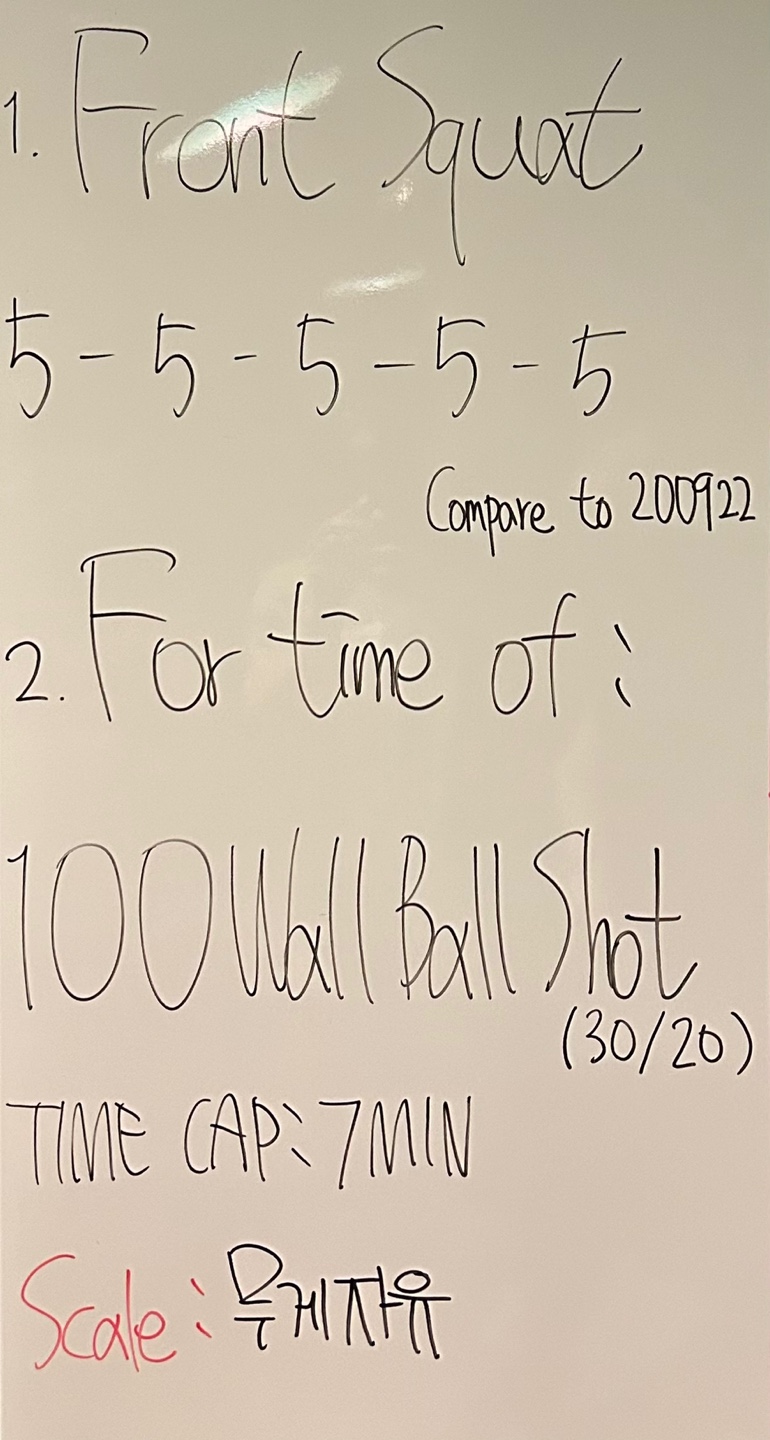 1. Front Squat
5 - 5 - 5 - 5 - 5
Compare to 200922
2. For time of :
100 Wall Ball Shot
(30/20)
TIME CAP: 7MIN
Scale: 무게자유